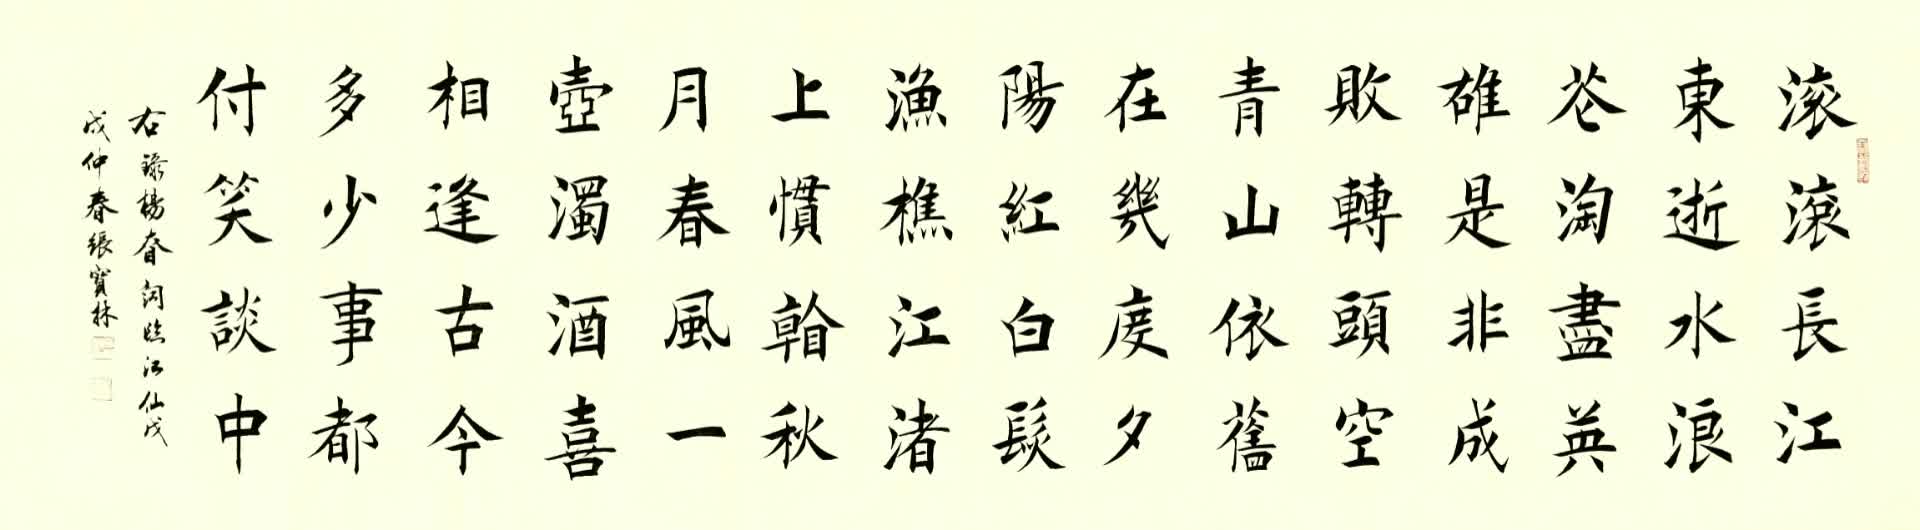 滚滾長江
東逝水浪
花淘盡英
雄是非成
敗轉頭空
青山依舊
在幾度夕
陽紅白髮
漁樵江渚
上慣看秋
月春風一
壺濁酒喜
相逢古今
多少事都
付笑談中
右録楊昚詞臨江仙戊
戌仲春張寶林